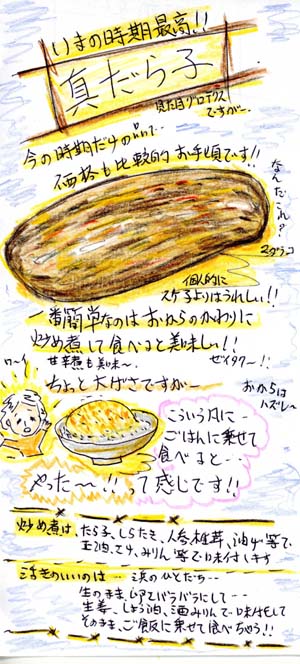 いまの時期最高!!
真だら子
見た目グロテスク
ですが…
今の時期だけの
価格も比較的お手頃です!!
なんだこれ?
マダラコ
個人的に
スケ子よりはうれしい!!
一番簡単なのはおからのかわりに
炒め煮して食べると美味しい!!
甘辛煮も美味〜
ゼイタク〜!!
ちょっと大げさですが〜
おからは
ハズレ〜
こういう風に…
ごはんに乗せて
食べると…
やった〜!!って感じです!!
炒め煮は、たら子、しらたき、人参、椎茸、油げ等で、
正油、さけ、みりん等で味付します
活きのいいのは…浜のひとだち…
生のまま、バラバラにして…
生姜、しょう油、酒みりんで味付をして
そのまま、ご飯に乗せて食べちゃう!!